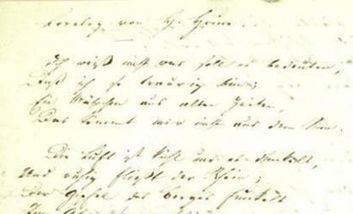 Loreley von H. Heine.
Ich weiß nicht was soll es bedeuten,
Daß ich so traurig bin;
Ein Mährchen aus alten Zeiten
Das kommt mir nicht aus dem Sinn.
Die Luft ist kühl und es dunkelt,
Und ruhig fließt der Rhein;
Der Gipfel des Berges funkelt